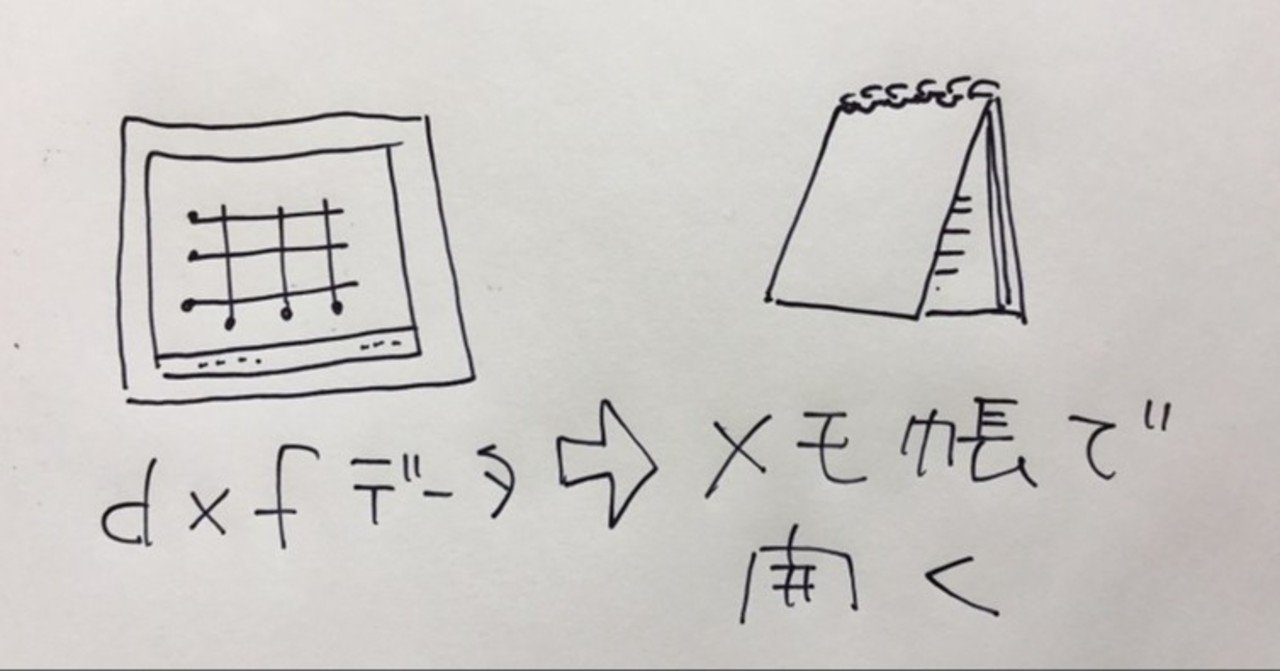 dxfデータ⇨メモ帳で
開く